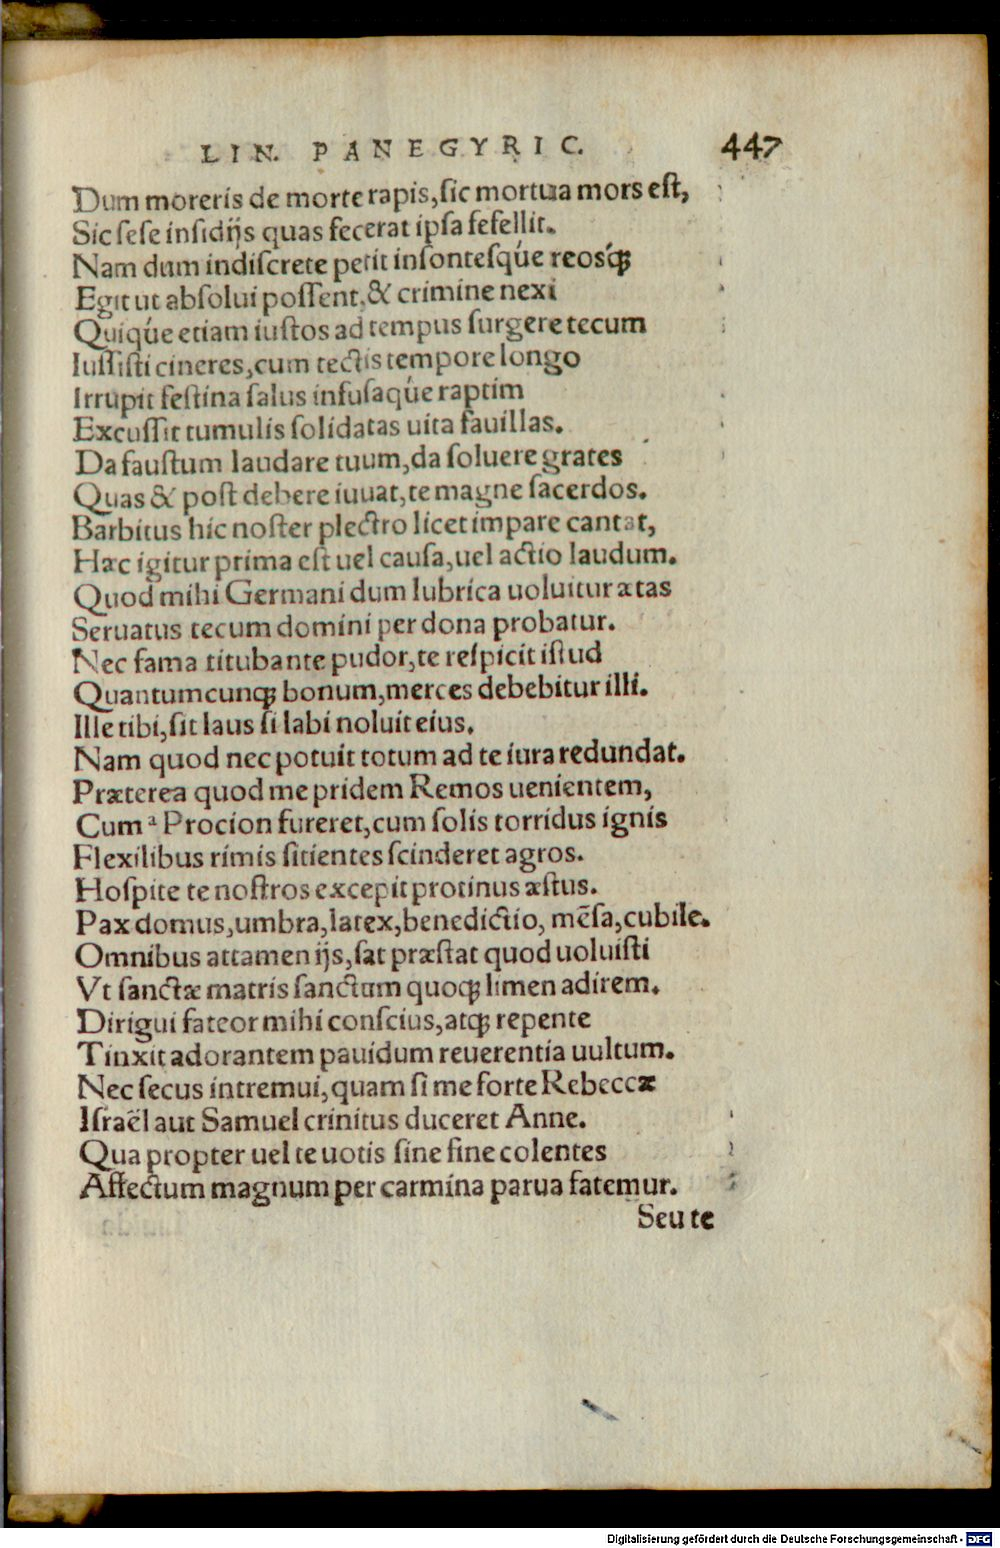 LIN. PANEGYRIC. 447
Dum moreris de morte rapis,sic mortua mors est,
Sic sese insidijs quas fecerat ipsa fefellit.
Nam dum indiscrete petit insontesq́ue reosq́;
Egit ut absolui possent,& crimine nexi
Quiq́ue etiam iustos ad tempus surgere tecum
Iussisti cineres,cum tectis tempore longo
Irrupit festina salus infusaq́ue raptim
Excussit tumulis solidatas uita fauillas.
Da faustum laudare tuum,da soluere grates
Quas & post debere iuuat,te magne sacerdos.
Barbitus hic noster plectro licet impare cantat,
Hæc igitur prima est uel causa,uel actio laudum.
Quod mihi Germani dum lubrica uoluitur ætas
Seruatus tecum domini per dona probatur.
Nec fama titubante pudor,te respicit istud
Quantumcunq; bonum,merces debebitur illi.
Ille tibi,sit laus si labi noluit eius.
Nam quod nec potuit totum ad te iura redundat.
Præterea quod me pridem Remos uenientem,
Cum ᵃ Procion fureret,cum solis torridus ignis
Flexilibus rimis sitientes scinderet agros.
Hospite te nostros excepit protinus æstus.
Pax domus,umbra,latex,benedictio, mēsa,cubile.
Omnibus attamen ijs,sat præstat quod uoluisti
Vt sanctæ matris sanctum quoq; limen adirem.
Dirigui fateor mihi conscius,atq; repente
Tinxit adorantem pauidum reuerentia uultum.
Nec secus intremui,quam si me forte Rebeccæ
Israël aut Samuel crinitus duceret Anne.
Qua propter uel te uotis sine fine colentes
Affectum magnum per carmina parua fatemur.
Seu te
Digitalisierung gefördert durch die Deutsche Forschungsgemeinschaft - DFG